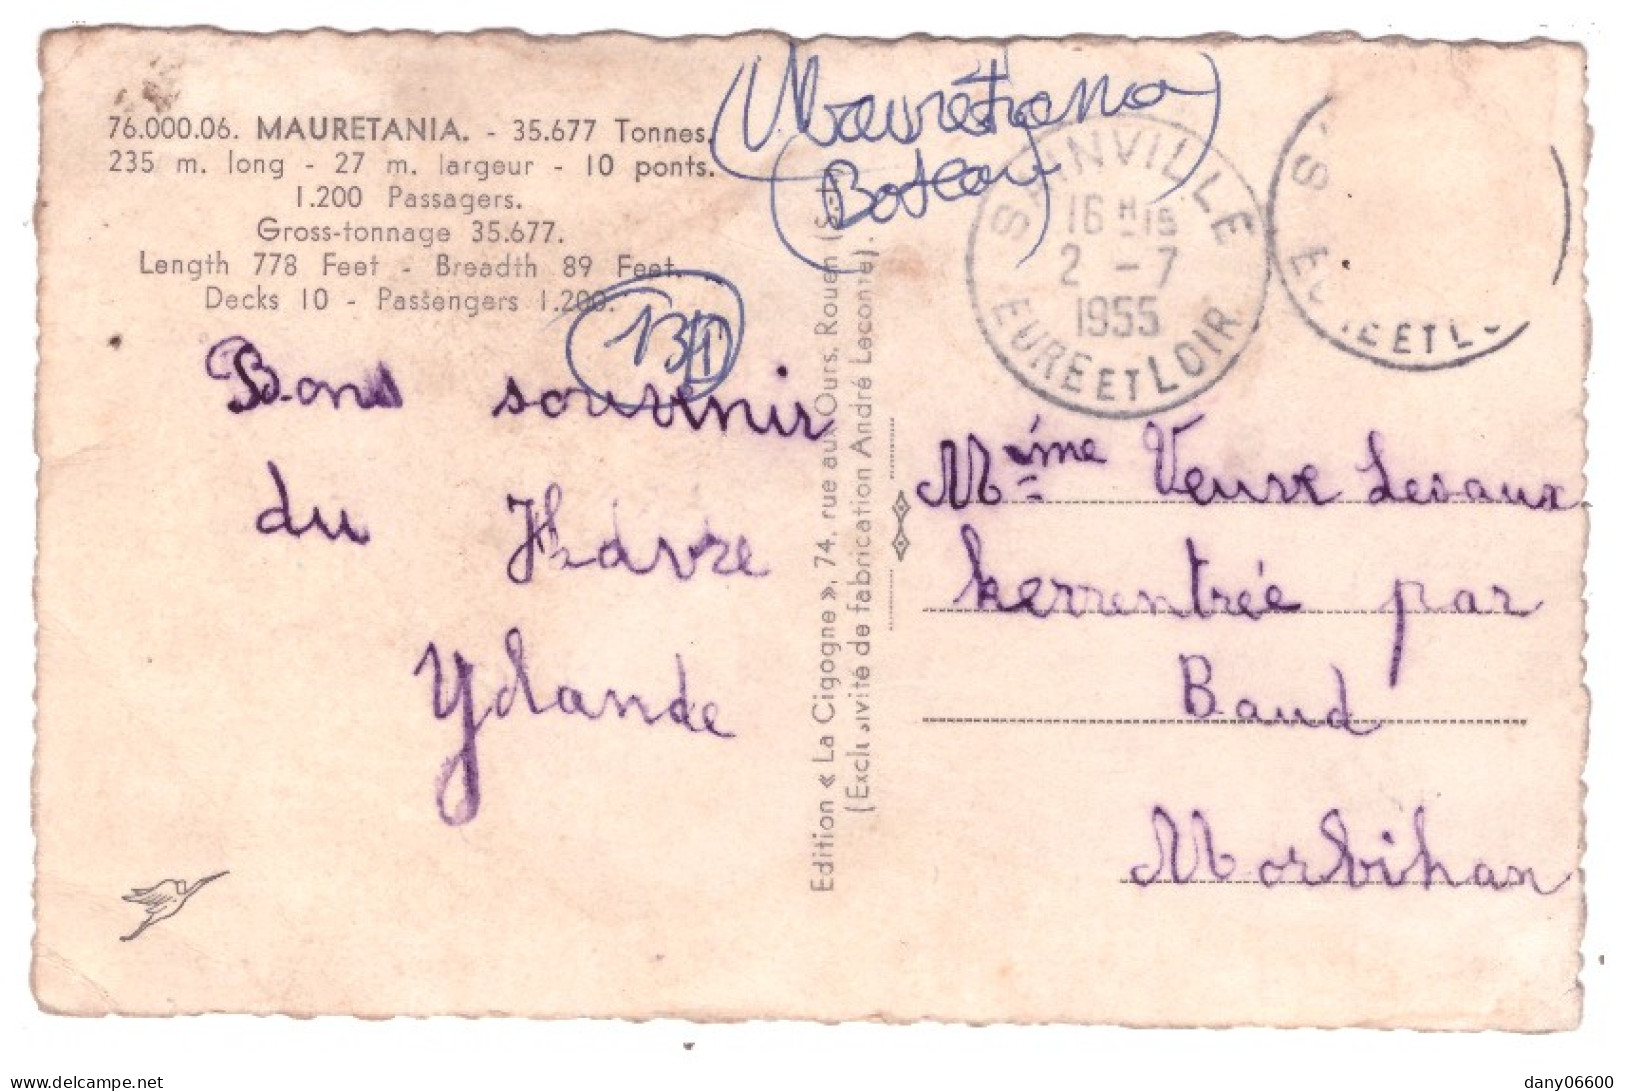 76.000.06. MAURETANIA. - 35.677 Tonnes.
235 m. long - 27 m. largeur - 10 ponts.
1.200 Passagers.
Gross-tonnage 35.677.
Length 778 Feet - Breadth 89 Feet.
Decks 10 - Passengers 1.200.
(Mauretania)
(Bateau)
Bons souvenir
du Hâvre
Ydande
Edition « La Cigogne », 74, rue aux Ours, Rouen
(Exclusivité de fabrication André Leconte).
SAINVILLE
16 H 15
2 - 7
1955
EURE ET LOIR
S
E ET L
Mème Veuve Levaux
kerrentrée par
Baud
Morbihan
delcampe.net
dany06600